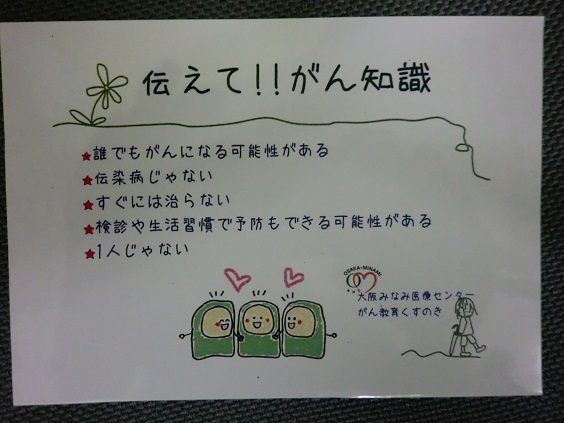 伝えて!!がん知識
★誰でもがんになる可能性がある
★伝染病じゃない
★すぐには治らない
★検診や生活習慣で予防もできる可能性がある
★1人じゃない
OSAKA-MINAMI
大阪みなみ医療センター
がん教育くすのき